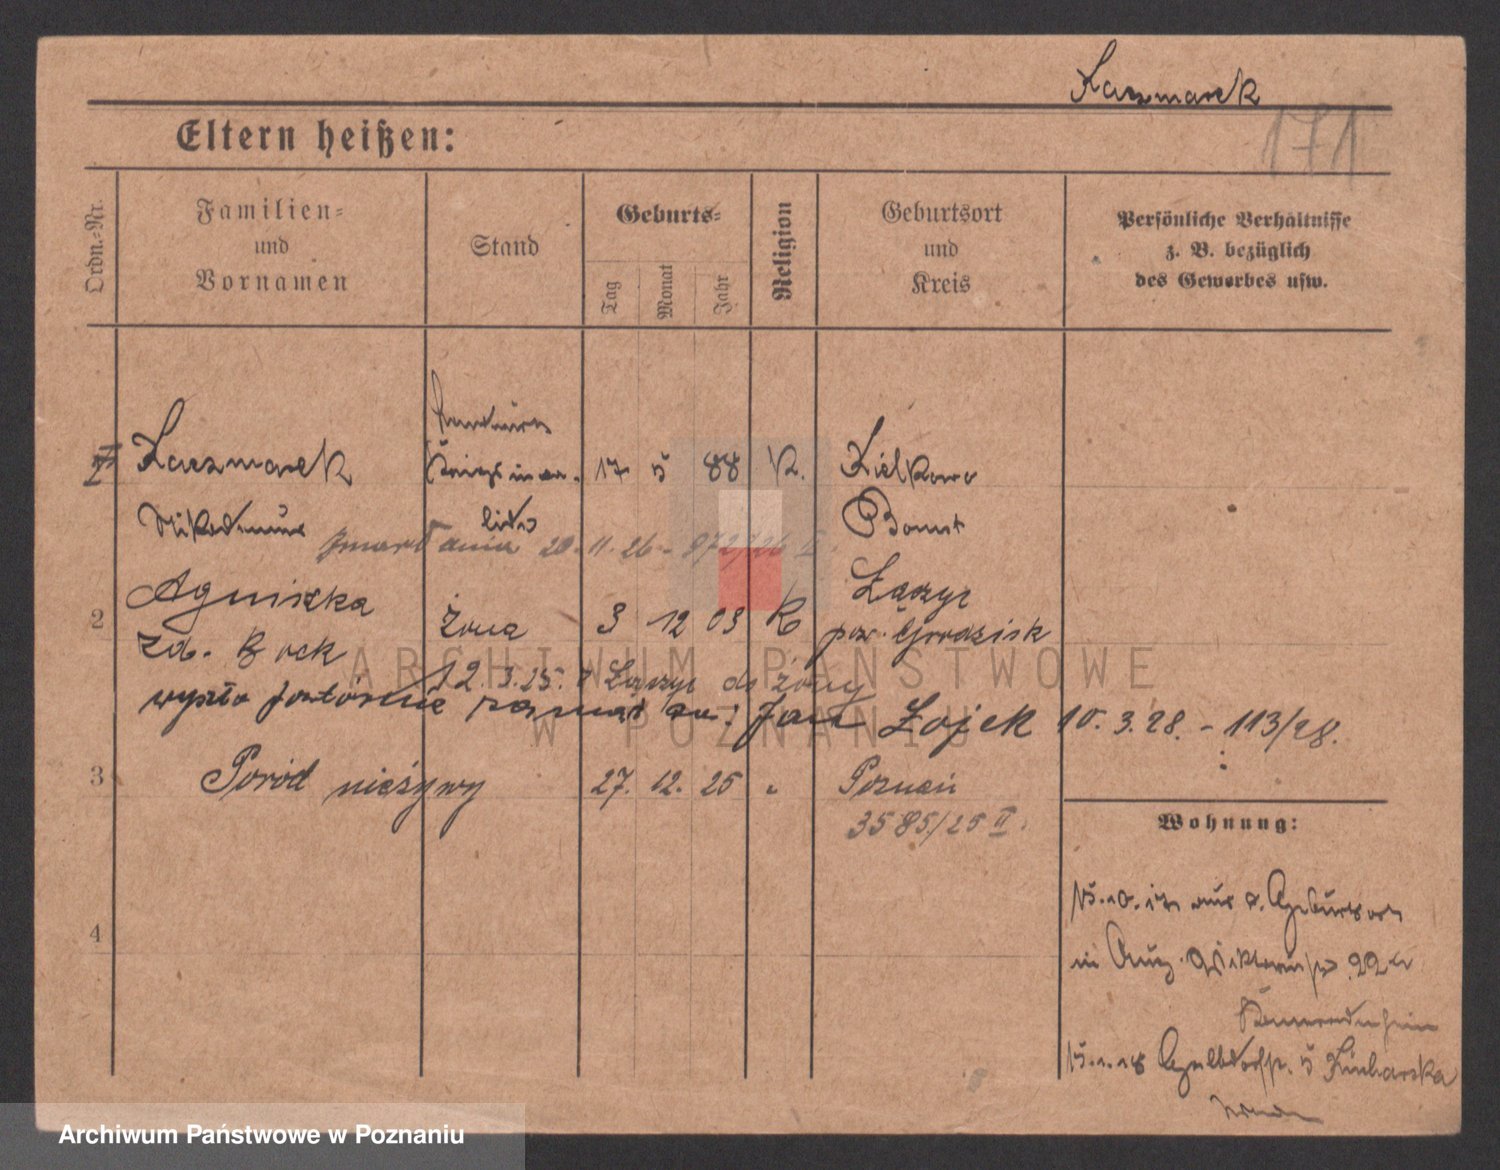 Kaczmarek
171
Eltern heißen:
Ordn.-Nr.
Familien-
und
Vornamen
Stand
Geburts-
Tag
Monat
Jahr
Religion
Geburtsort
und
Kreis
Persönliche Verhältnisse
z. B. bezüglich
des Gewerbes usw.
Kaczmarek 17 5 88 K. Kielkowo
Nikodemus Bomst
zmarł dnia 20.11.26 - 872/26 II.
2 Agnieszka żona 3 12 03 K Łączyc
zd. Bock pow. Grodzisk
12.3.25. Łączyc do żony
wyszła powtórnie zamąż za: Jan Łojek 10.3.28. - 113/28.
3 Poród nieżywy 27. 12. 25 " Poznań
3585/25 II.
4
Wohnung:
15.10.17 aus d. Geburtsort
in Aug. Viktoriastr 22
Kucharska
ARCHIWUM PAŃSTWOWE
W POZNANIU
Archiwum Państwowe w Poznaniu